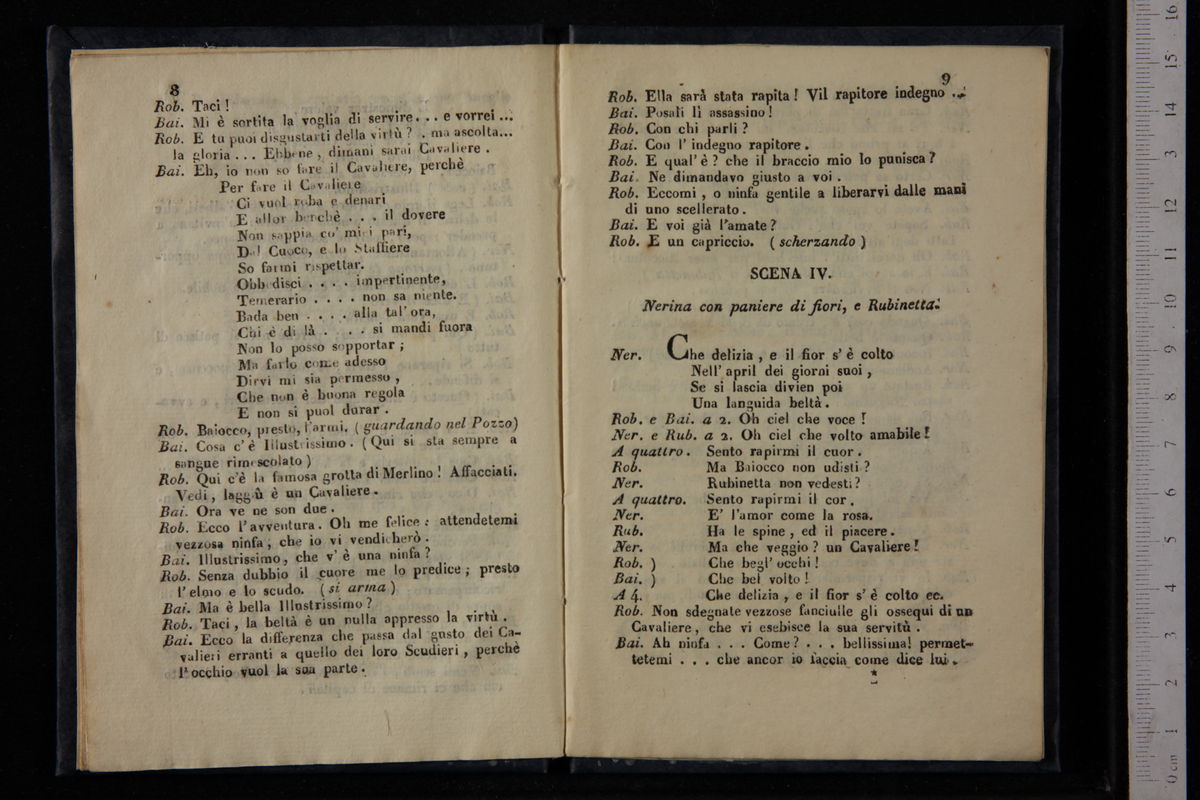 8
Rob. Taci !
Bai. Mi è sortita la voglia di servire. . . e vorrei ...
Rob. E tu puoi disgustarti della virtù ? . ma ascolta...
la gloria . . . Ebbene , dimani sarai Cavaliere .
Bai. Eh, io non so fare il Cavaliere, perchè
Per fare il Cavaliere
Ci vuol roba e denari
E allor berchè . . . il dovere
Non sappia co' miei pari,
Dal Cuoco, e lo Staffiere
So farmi rispettar.
Obbedisci . . . . impertinente,
Temerario . . . . non sa niente.
Bada ben . . . . alla tal' ora,
Chi è di là . . . . si mandi fuora
Non lo posso sopportar ;
Ma farlo come adesso
Dirvi mi sia permesso ,
Che non è buona regola
E non si puol durar .
Rob. Baiocco, presto, l'armi. ( guardando nel Pozzo)
Bai. Cosa c'è Illustrissimo. ( Qui si sta sempre a
sangue rimescolato )
Rob. Qui c'è la famosa grotta di Merlino ! Affacciati.
Vedi , laggiù è un Cavaliere .
Bai. Ora ve ne son due .
Rob. Ecco l'avventura. Oh me felice : attendetemi
vezzosa ninfa , che io vi vendicherò .
Bai. Illustrissimo, che v' è una ninfa ?
Rob. Senza dubbio il cuore me lo predice ; presto
l'elmo e lo scudo. ( si arma )
Bai. Ma è bella Illustrissimo ?
Rob. Taci , la beltà è un nulla appresso la virtù .
Bai. Ecco la differenza che passa dal gusto dei Ca-
valieri erranti a quello dei loro Scudieri , perchè
l'occhio vuol la sua parte .
9
Rob. Ella sarà stata rapita ! Vil rapitore indegno . .
Bai. Posali lì assassino !
Rob. Con chi parli ?
Bai. Con l' indegno rapitore .
Rob. E qual' è ? che il braccio mio lo punisca ?
Bai. Ne dimandavo giusto a voi .
Rob. Eccomi , o ninfa gentile a liberarvi dalle mani
di uno scellerato .
Bai. E voi già l'amate ?
Rob. E un capriccio. ( scherzando )
SCENA IV.
Nerina con paniere di fiori, e Rubinetta.
Ner. Che delizia , e il fior s' è colto
Nell' april dei giorni suoi ,
Se si lascia divien poi
Una languida beltà .
Rob. e Bai. a 2. Oh ciel che voce !
Ner. e Rub. a 2. Oh ciel che volto amabile !
A quattro. Sento rapirmi il cuor .
Rob. Ma Baiocco non udisti ?
Ner. Rubinetta non vedesti ?
A quattro. Sento rapirmi il cor .
Ner. E' l'amor come la rosa.
Rub. Ha le spine , ed il piacere .
Ner. Ma che veggio ? un Cavaliere !
Rob. ) Che begl' occhi !
Bai. ) Che bel volto !
A 4. Che delizia , e il fior s' è colto ec.
Rob. Non sdegnate vezzose fanciulle gli ossequi di un
Cavaliere , che vi esebisce la sua servitù .
Bai. Ah ninfa . . . Come ? . . . bellissima! permet-
tetemi . . . che ancor io faccia come dice lui .
*
0 cm 1 2 3 4 5 6 7 8 9 10 11 12 13 14 15 16